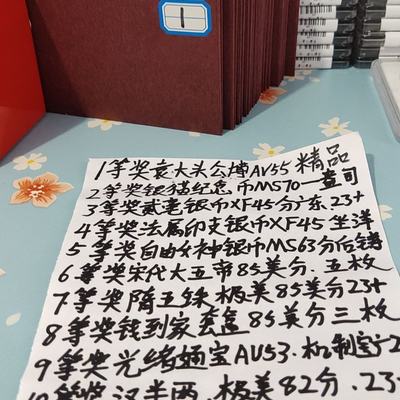 1
1等奖袁大头公博AV55 精品
2等奖银猫纪念币MS70一盎司
3等奖贰毫银币XF45分广东.23+
4等奖法属印支银币XF45 坐洋
5等奖自由女神银币MS63分后铸
6等奖宋代大五帝85美分.五枚
7等奖隋五铢 极美85美分23+
8等奖钱到家套盒85美分三枚
9等奖光绪通宝AU53.机制
10等奖汉半两.极美82分.23